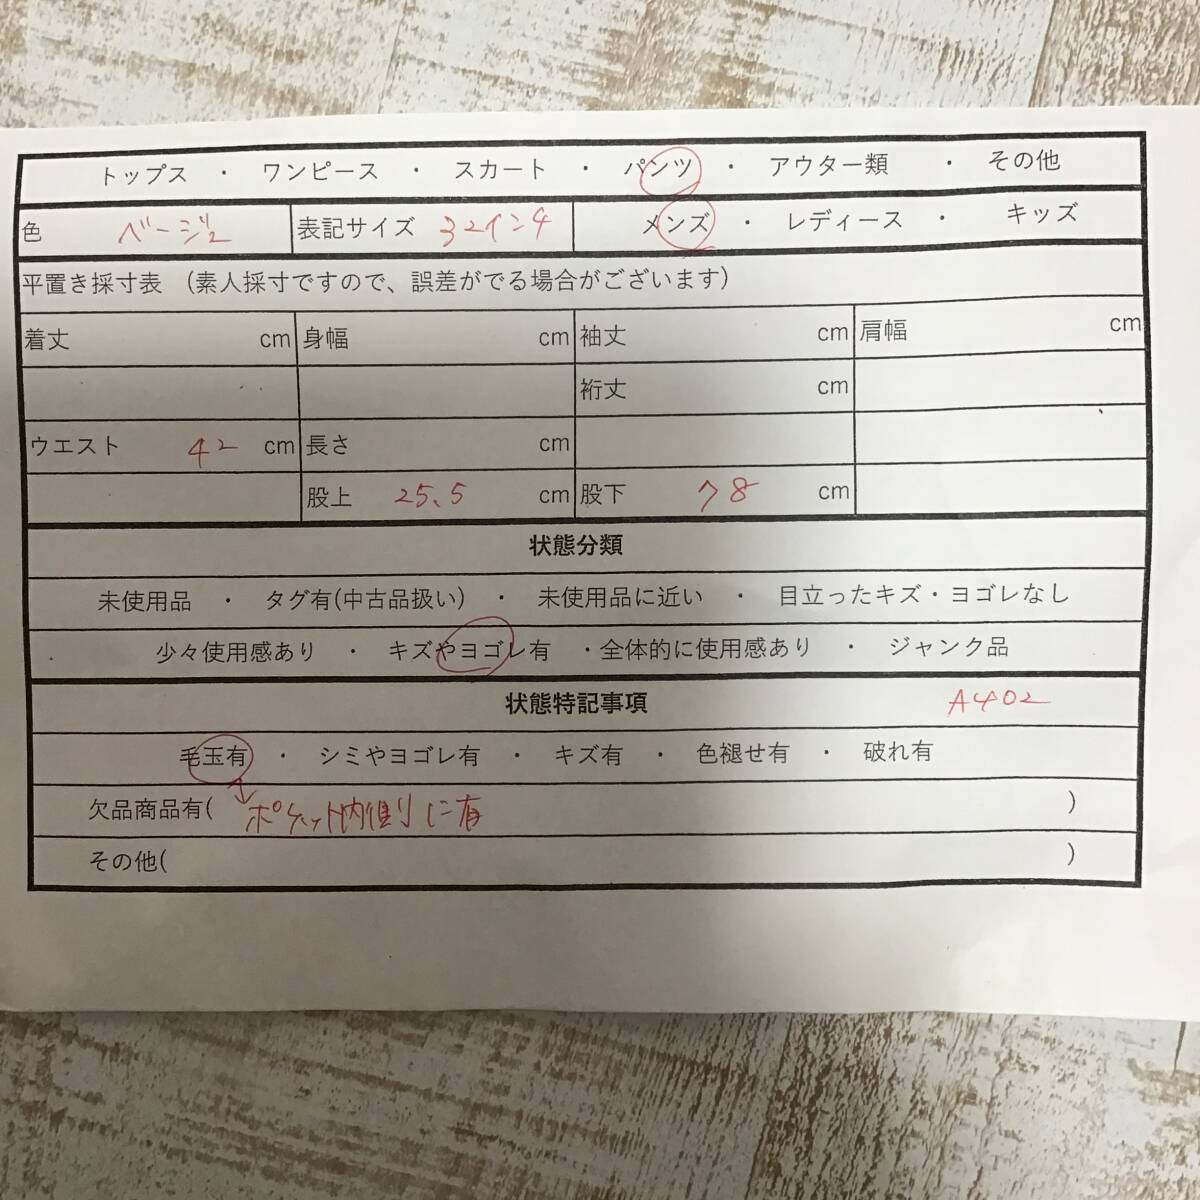 トップス ・ ワンピース ・ スカート ・ パンツ ・ アウター類 ・ その他
色 ベージュ 表記サイズ 32インチ メンズ ・ レディース ・ キッズ
平置き採寸表 (素人採寸ですので、誤差がでる場合がございます)
着丈 cm 身幅 cm 袖丈 cm 肩幅 cm
裄丈 cm
ウエスト 42 cm 長さ cm
股上 25.5 cm 股下 78 cm
状態分類
未使用品 ・ タグ有(中古品扱い) ・ 未使用品に近い ・ 目立ったキズ・ヨゴレなし
少々使用感あり ・ キズやヨゴレ有 ・全体的に使用感あり ・ ジャンク品
状態特記事項 A402
毛玉有 ・ シミやヨゴレ有 ・ キズ有 ・ 色褪せ有 ・ 破れ有
欠品商品有( ポケット内側に有 )
その他( )